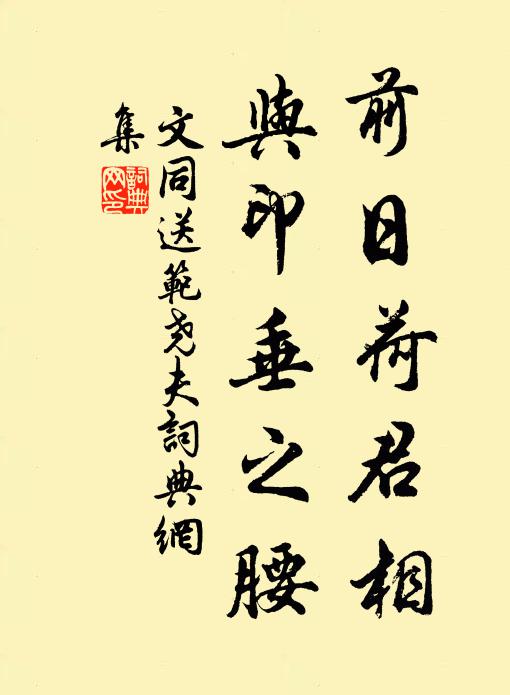 前日荷君相
與印垂之腰
文同送範尧夫詞典網
集
詞典
网印